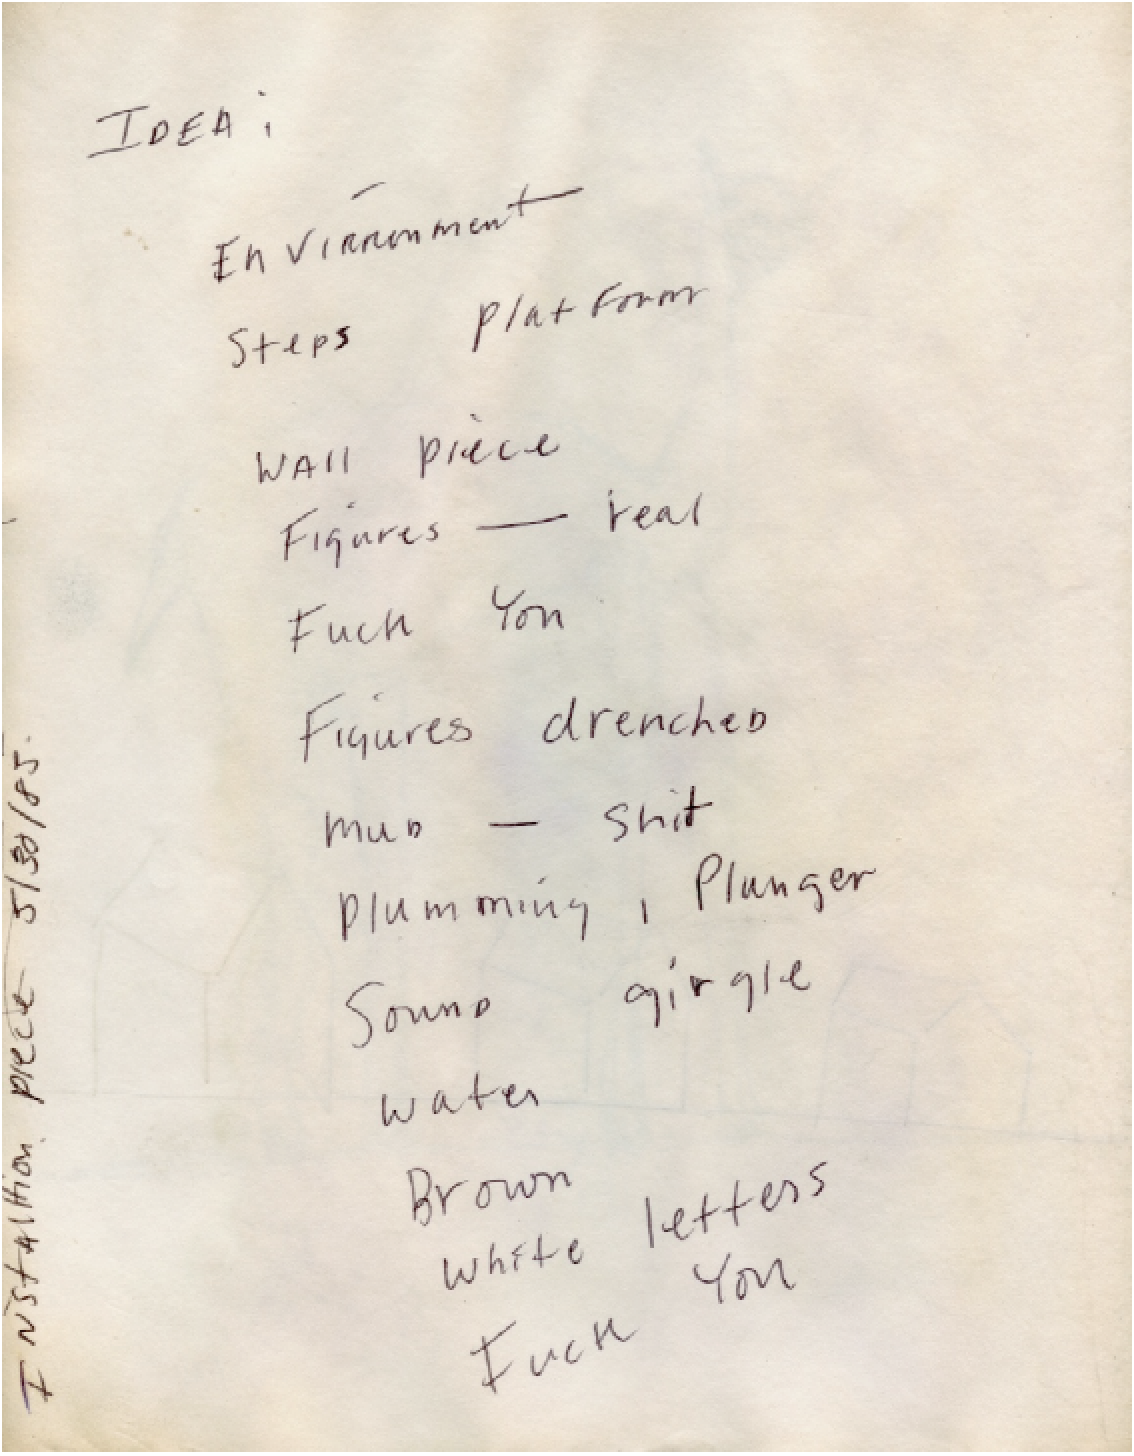 IDEA:
Environment
Steps platform
WAll piece
Figures — real
Fuck You
Figures drenched
Mud — Shit
plumming, Plunger
Sound girgle
water
Brown
White letters
Fuck You
INstAlltion piece 5/30/85.